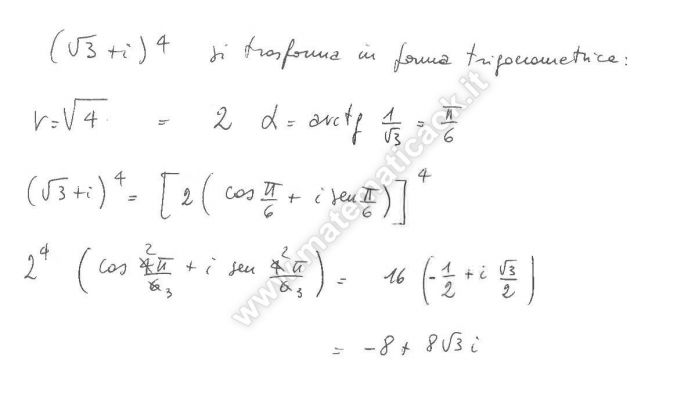 (√3 + i)^4 si trasforma in forma trigonometrica:
r = √4 = 2 α = arctg 1/√3 = π/6
(√3 + i)^4 = [2 (cos π/6 + i sen π/6)]^4
2^4 (cos 4̶ 2 π/6̶ 3 + i sen 4̶ 2 π/6̶ 3) = 16 (-1/2 + i √3/2)
= -8 + 8√3 i
www.matematicaok.it